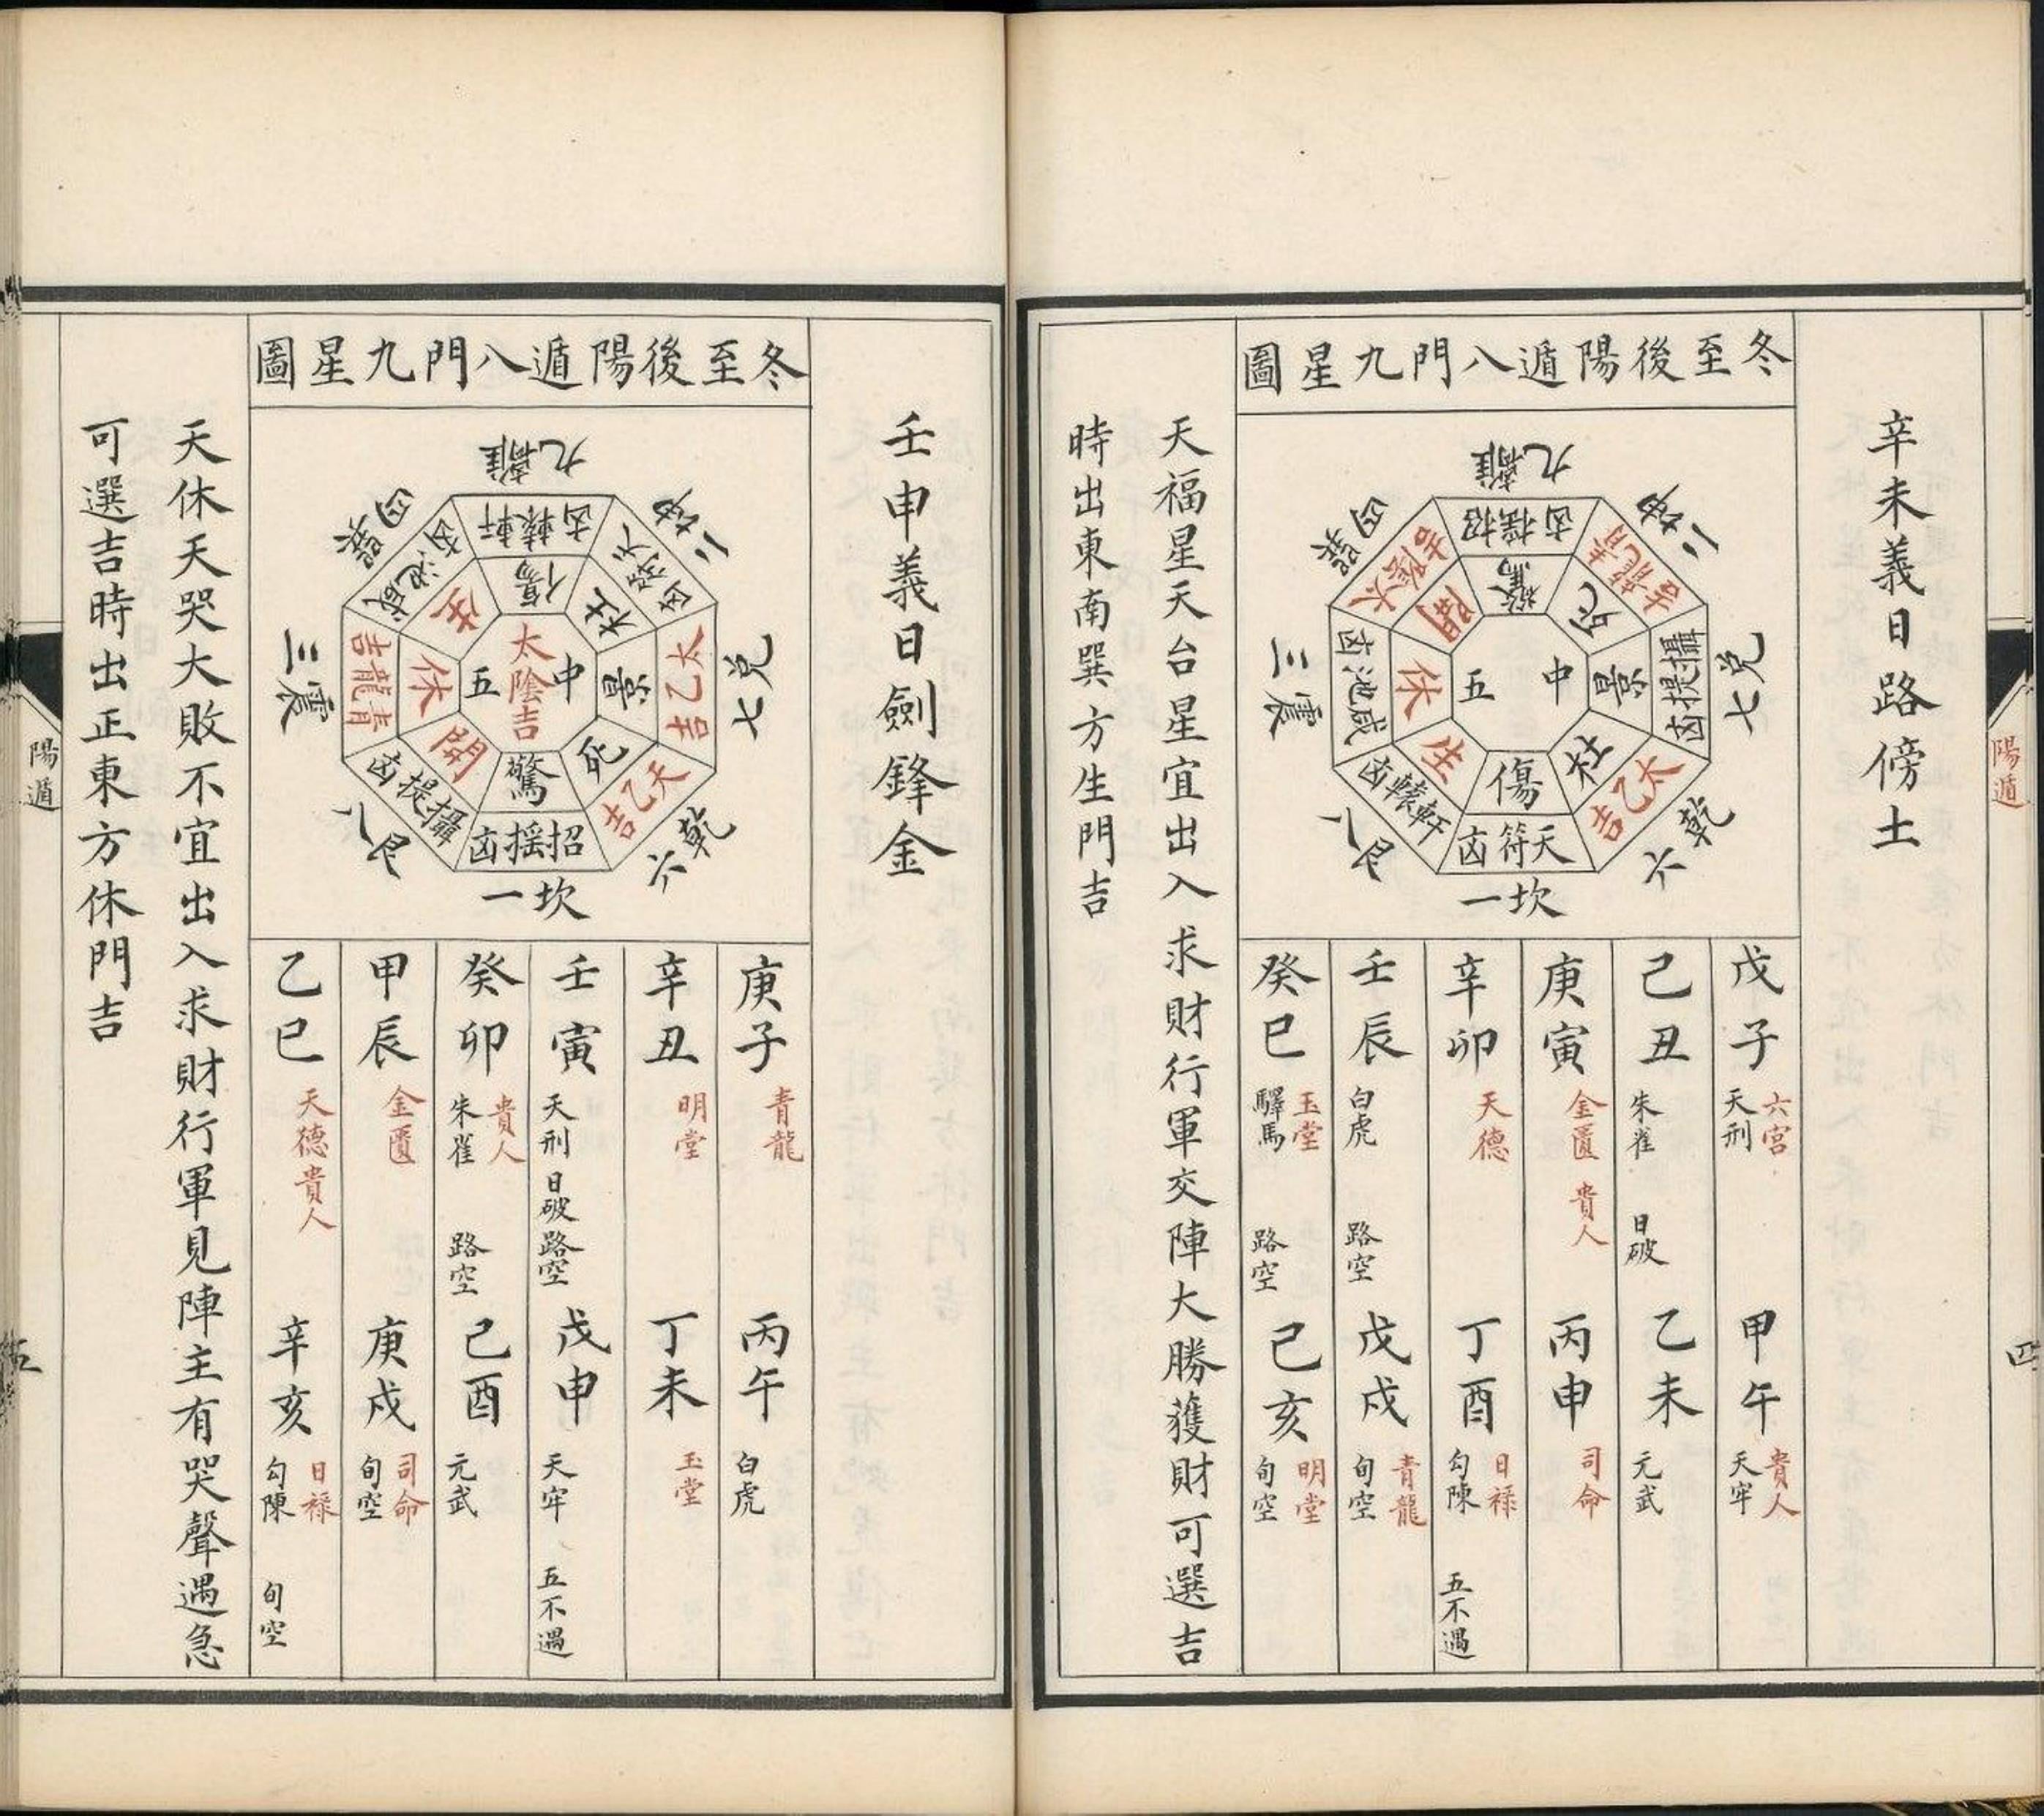 陽遁
四
辛未義日路傍土
冬至後陽遁八門九星圖
九離
二坤
七兌
六乾
一坎
八艮
三震
四巽
招搖凶
青龍吉
攝提凶
太乙吉
天符凶
軒轅凶
咸池凶
太陰吉
驚
死
景
杜
傷
生
休
開
中五
戊子 六宮 天刑
甲午 貴人 天牢
己丑 朱雀 日破
乙未 元武
庚寅 金匱 貴人
丙申 司命
辛卯 天德
丁酉 日祿 勾陳 五不遇
壬辰 白虎 路空
戊戌 青龍 旬空
癸巳 玉堂 驛馬 路空
己亥 明堂 旬空
天福星天台星宜出入求財行軍交陣大勝獲財可選吉
時出東南巽方生門吉
壬申義日劍鋒金
冬至後陽遁八門九星圖
九離
二坤
七兌
六乾
一坎
八艮
三震
四巽
軒轅凶
天符凶
太乙吉
天乙吉
招搖凶
攝提凶
青龍吉
咸池凶
傷
杜
景
死
驚
開
休
生
中五
太陰吉
庚子 青龍
丙午 白虎
辛丑 明堂
丁未 玉堂
壬寅 天刑 日破 路空
戊申 天牢 五不遇
癸卯 貴人 朱雀 路空
己酉 元武
甲辰 金匱
庚戌 司命 旬空
乙巳 天德 貴人
辛亥 日祿 勾陳 旬空
天休天哭大敗不宜出入求財行軍見陣主有哭聲遇急
可選吉時出正東方休門吉
陽遁
五